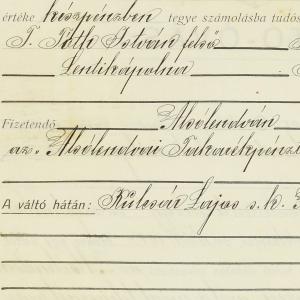 értéke készpénzben tegye számolásba tudós
T. Tóth István felső
Lentikápolna
Fizetendő Alsólendván
az. Alsólendvai Takarékpénz
A váltó hátán: Kulcsár Lajos s. k.